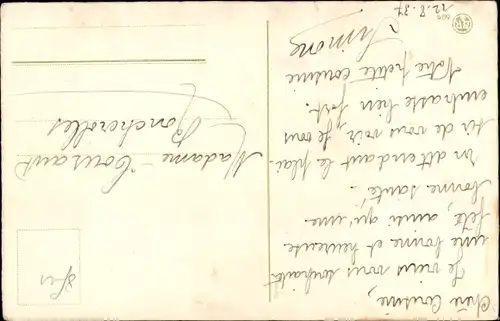 Chère Cousine,
Je viens vous souhaiter
une bonne et heureuse
fête, ainsi qu'une
bonne santé.
En attendant le plai-
sir de vous voir, Je vous
embrasse bien fort.
Votre petite cousine
Simone
12.8.37
Madame Toussaint
Roncherolles